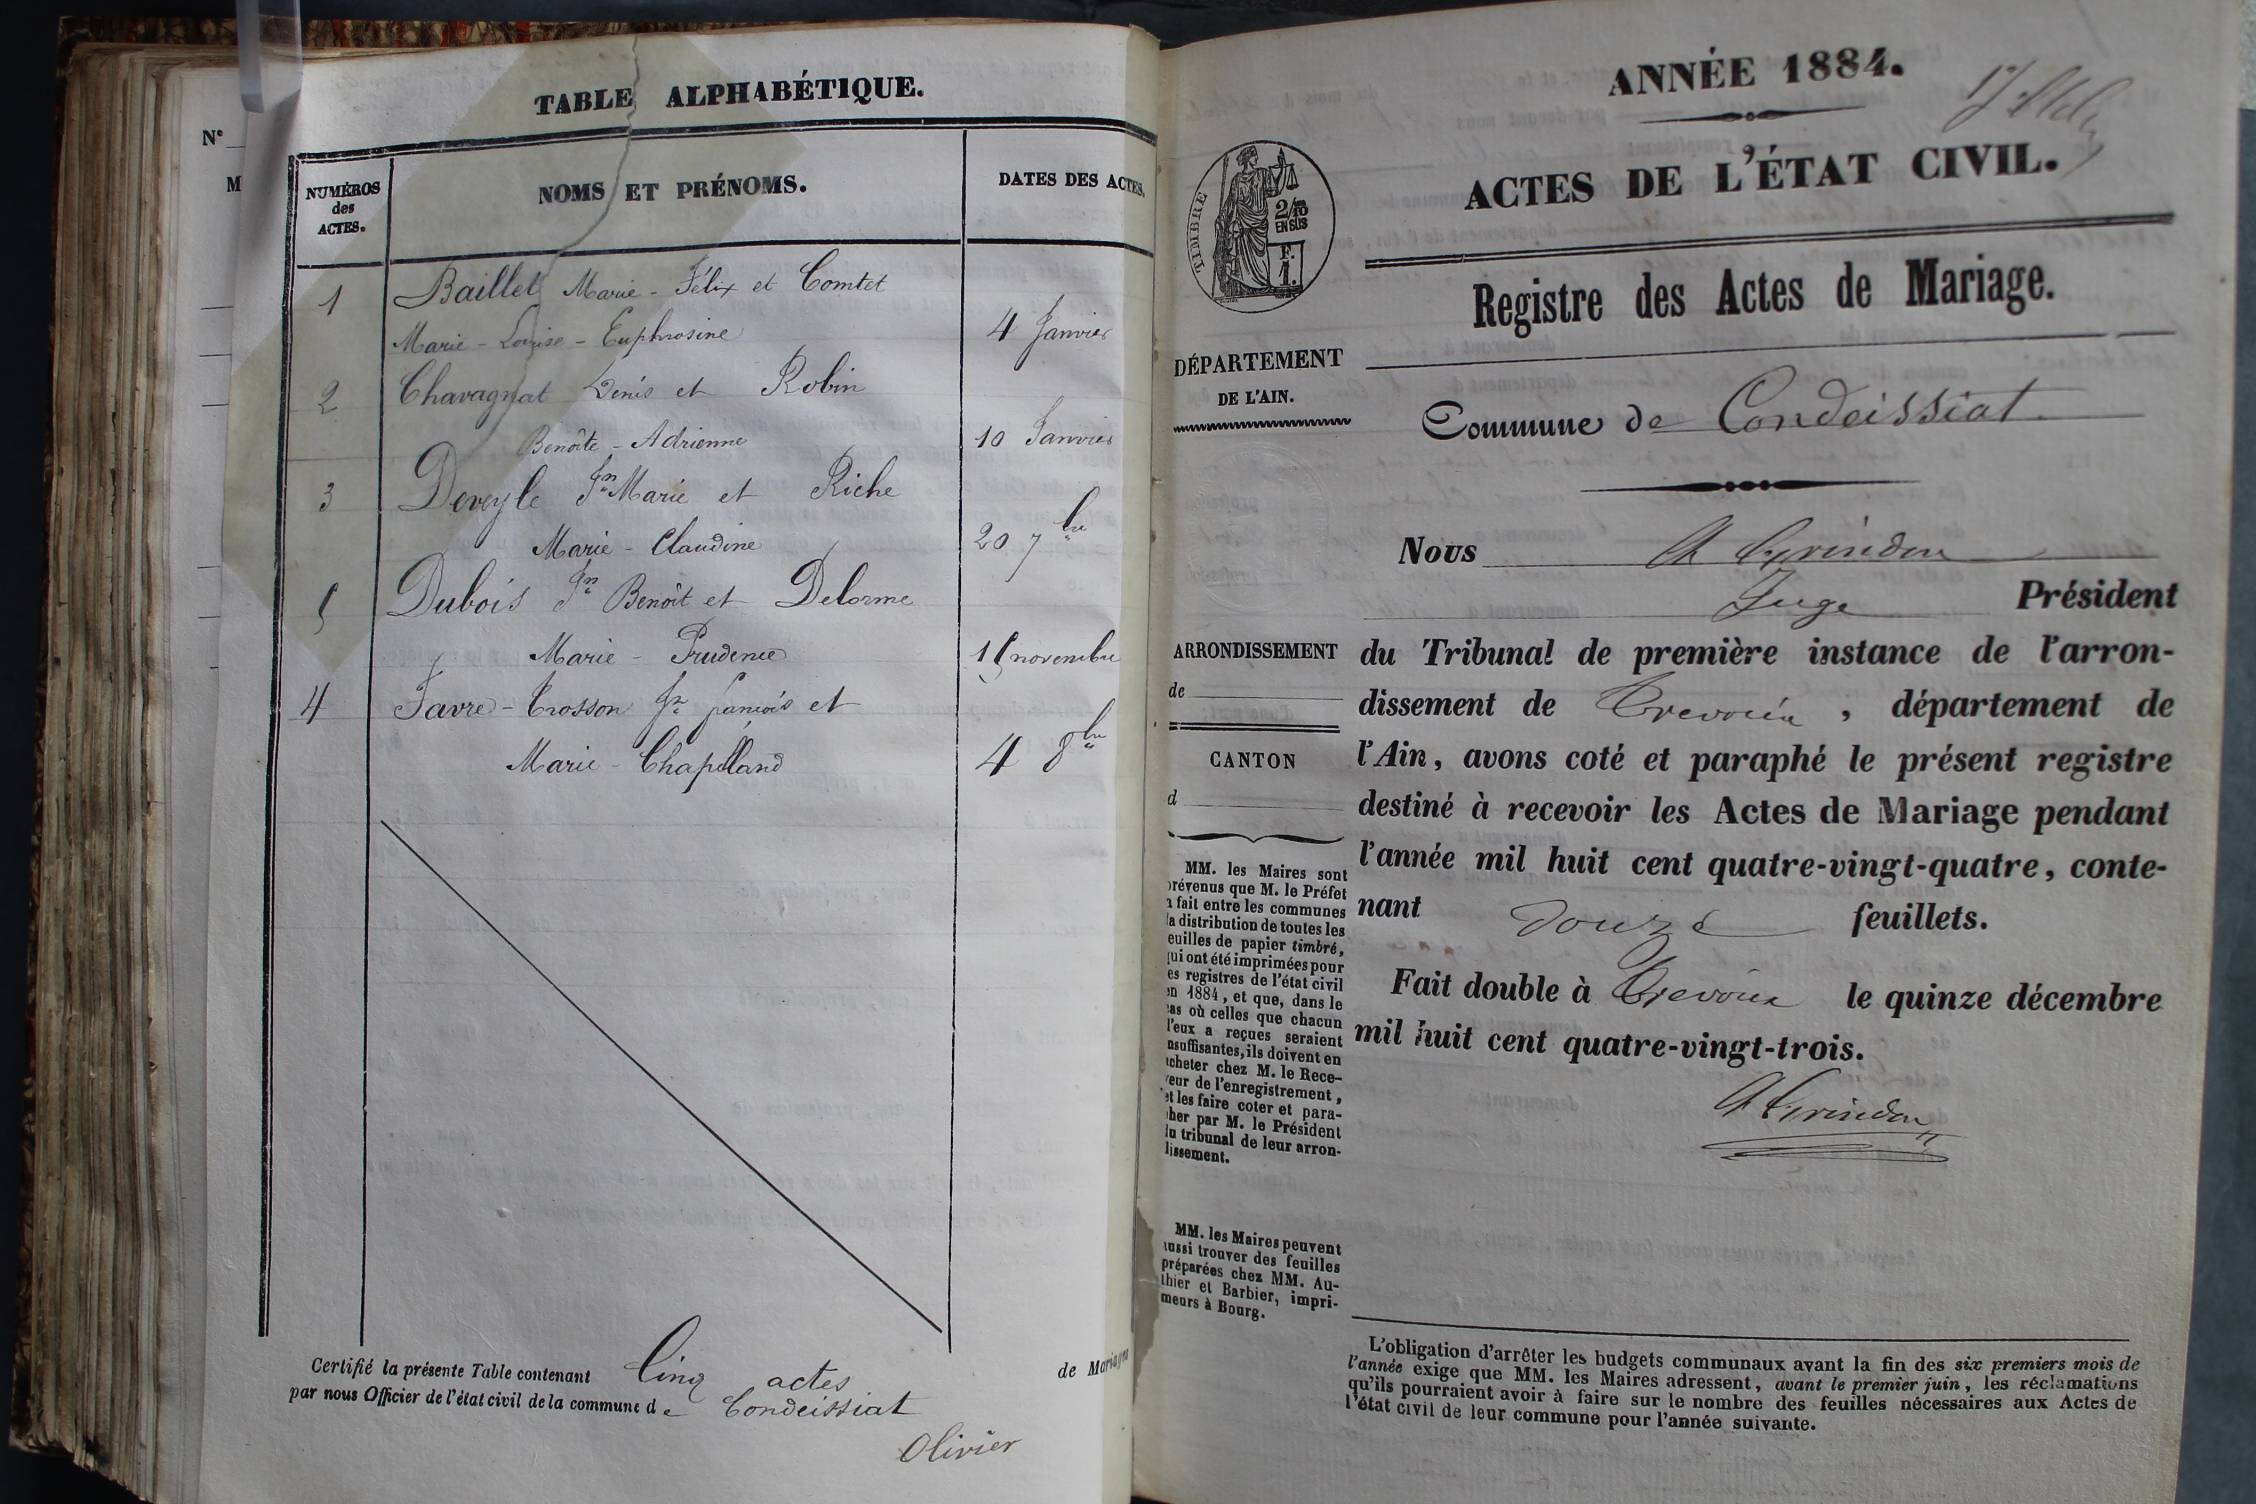 N°
M
TABLE ALPHABÉTIQUE.
NUMÉROS
des
ACTES.
NOMS ET PRÉNOMS.
DATES DES ACTES.
1 Baillet Marie - Félix et Comtet
Marie - Louise - Euphrosine 4 Janvier
2 Chavagnat Denis et Robin
Benoîte - Adrienne 10 Janvier
3 Deveyle Jn Marie et Riche
Marie - Claudine 20 7bre
5 Dubois Jn Benoît et Delorme
Marie - Prudence 15 novembre
4 Favre - Trosson Jn françois et
Marie - Chapelland 4 8bre
Certifié la présente Table contenant Cinq actes de Mariages
par nous Officier de l'état civil de la commune de Condeissiat
Olivier
ANNÉE 1884.
ACTES DE L'ÉTAT CIVIL.
TIMBRE
2/10
EN SUS
F.
1.
Registre des Actes de Mariage.
DÉPARTEMENT
DE L'AIN.
Commune de Condeissiat.
Nous A Grindon
Juge Président
ARRONDISSEMENT
de
CANTON
d
du Tribunal de première instance de l'arron-
dissement de Trevoux, département de
l'Ain, avons coté et paraphé le présent registre
destiné à recevoir les Actes de Mariage pendant
l'année mil huit cent quatre-vingt-quatre, conte-
nant douze feuillets.
Fait double à Trevoux le quinze décembre
mil huit cent quatre-vingt-trois.
A Grindon
MM. les Maires sont
prévenus que M. le Préfet
a fait entre les communes
la distribution de toutes les
feuilles de papier timbré,
qui ont été imprimées pour
les registres de l'état civil
en 1884, et que, dans le
cas où celles que chacun
d'eux a reçues seraient
insuffisantes, ils doivent en
acheter chez M. le Rece-
veur de l'enregistrement,
et les faire coter et para-
pher par M. le Président
du tribunal de leur arron-
dissement.
MM. les Maires peuvent
aussi trouver des feuilles
préparées chez MM. Au-
thier et Barbier, impri-
meurs à Bourg.
L'obligation d'arrêter les budgets communaux avant la fin des six premiers mois de
l'année exige que MM. les Maires adressent, avant le premier juin, les réclamations
qu'ils pourraient avoir à faire sur le nombre des feuilles nécessaires aux Actes de
l'état civil de leur commune pour l'année suivante.